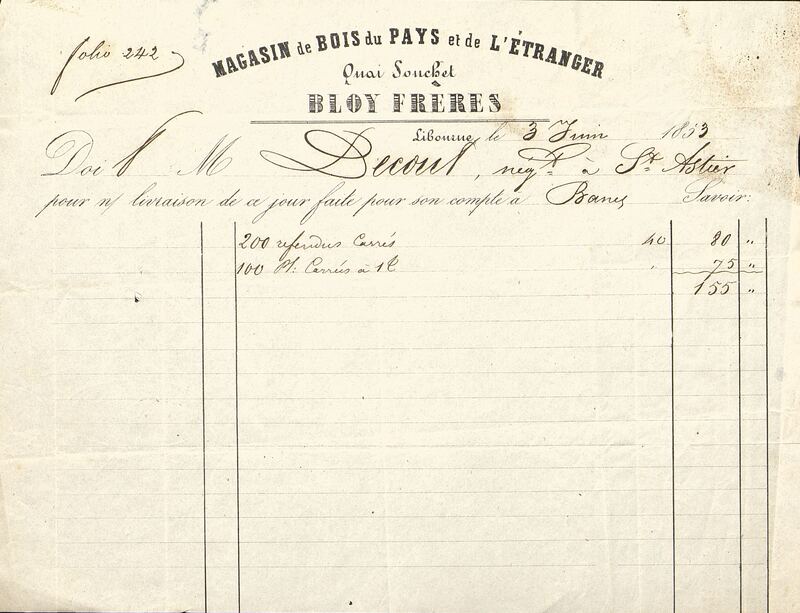 folio 242
MAGASIN de BOIS du PAYS et de L'ÉTRANGER
Quai Souchet
BLOY FRÈRES
Libourne, le 3 Juin 1853
Doit M Decout, negt. à St. Astier
pour n/ livraison de ce jour faite pour son compte à Savoir:
200 refendus Carrés 40 80 "
100 Pl: Carrés à 1 " 75 "
155 "